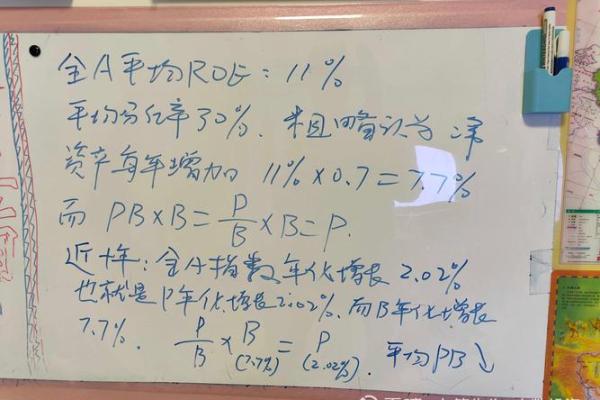 全A平均ROE：11%
平均分红率30%、粗略认为净
资产每年增加 11%×0.7=7.7%
而 PB×B=P/B×B=P.
近十年：全A指数年化增长 2.02%
也就是P年化增长2.02%、而B年化增长
7.7%. P/B × B (7.7%) = P (2.02%). 平均PB↓